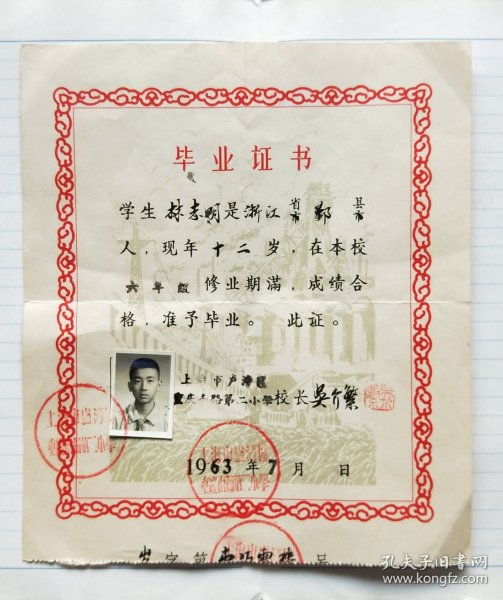 毕业证书
学生 林志明是浙江省市鄞县市
人，现年十二岁，在本校
六年级 修业期满，成绩合
格，准予毕业。 此证。
上海市卢湾区
重庆南路第二小学校长
1963年7月 日
字第
号
孔夫子旧书网
www.kongfz.com